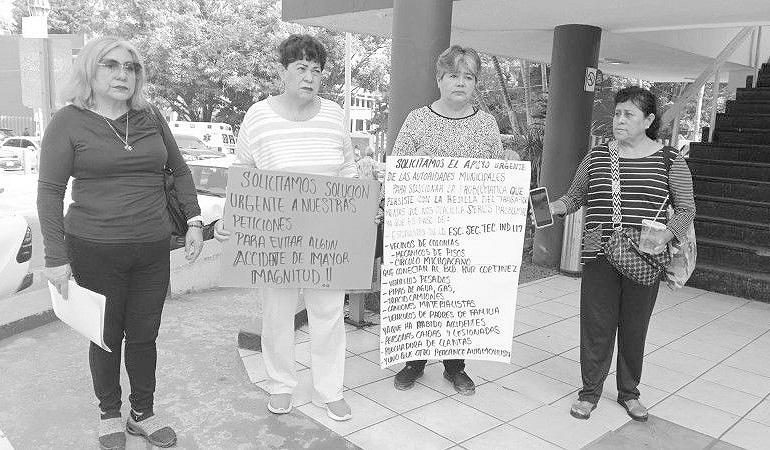 SOLICITAMOS SOLUCIÓN
URGENTE A NUESTRAS
PETICIONES
PARA EVITAR ALGUN
ACCIDENTE DE MAYOR
MAGNITUD!!
SOLICITAMOS EL APOYO URGENTE
DE LAS AUTORIDADES MUNICIPALES
PARA SOLUCIONAR LA PROBLEMATICA QUE
PERSISTE CON LA
YA QUE ES PASO DE:
- ESTUDIANTES DE LA ESC. SEC. TEC. IND 117
- VECINOS DE COLONIAS
- MECANICOS DE PISOS
- CIRCULO MICHOACANO
QUE CONECTAN AL BLD. RUR CORTINEZ
- VEHICULOS PESADOS
- PIPAS DE AGUA, GAS,
- TRACTO CAMIONES
- CAMIONES MATERIALISTAS
- VEHICULOS DE PADRES DE FAMILIA
YA QUE HA HABIDO ACCIDENTES
- PERSONAS CAIDAS Y LESIONADAS
- PONCHADURA DE LLANTAS
- Y UNO QUE OTRO PERCANCE AUTOMOVILISTICO